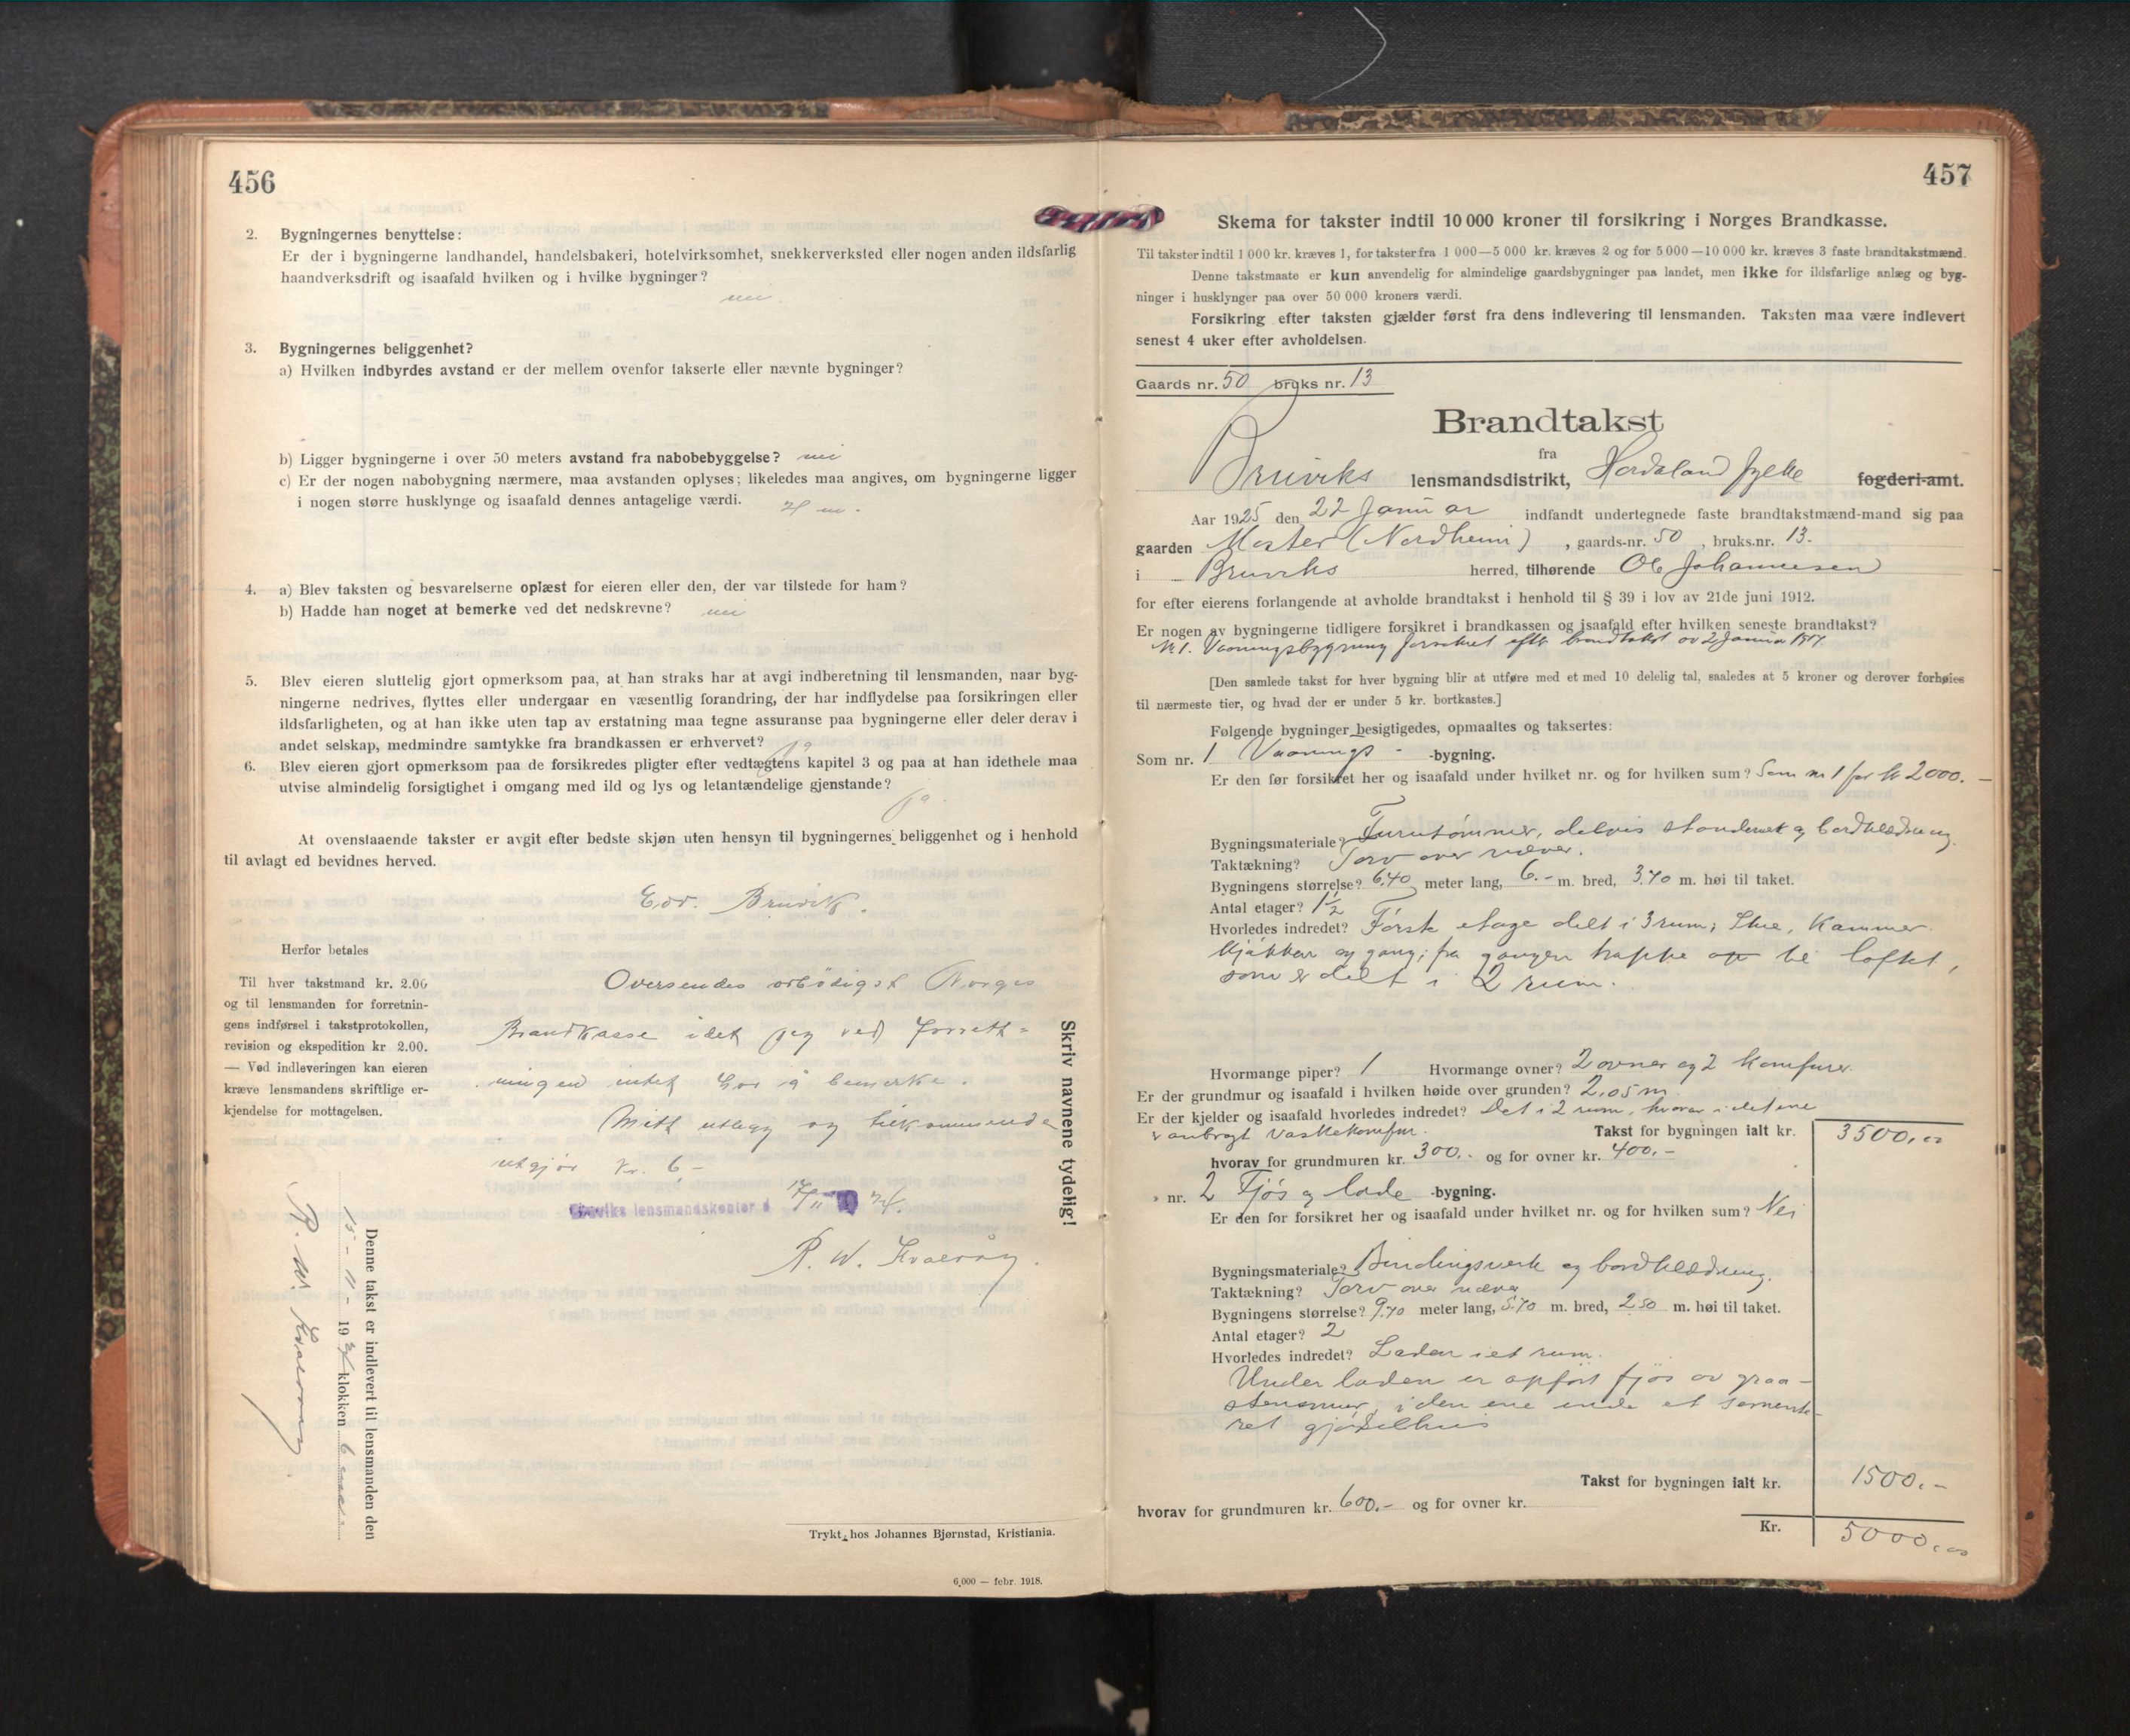 456
2. Bygningernes benyttelse:
Er der i bygningerne landhandel, handelsbakeri, hotelvirksomhet, snekkerverksted eller nogen anden ildsfarlig
haandverksdrift og isaafald hvilken og i hvilke bygninger?
nei.
3. Bygningernes beliggenhet?
a) Hvilken indbyrdes avstand er der mellem ovenfor takserte eller nævnte bygninger?
b) Ligger bygningerne i over 50 meters avstand fra nabobebyggelse? nei
c) Er der nogen nabobygning nærmere, maa avstanden oplyses; likeledes maa angives, om bygningerne ligger
i nogen større husklynge og isaafald dennes antagelige værdi.
m.
4. a) Blev taksten og besvarelserne oplæst for eieren eller den, der var tilstede for ham?
b) Hadde han noget at bemerke ved det nedskrevne? nei
5. Blev eieren sluttelig gjort opmerksom paa, at han straks har at avgi indberetning til lensmanden, naar byg-
ningerne nedrives, flyttes eller undergaar en væsentlig forandring, der har indflydelse paa forsikringen eller
ildsfarligheten, og at han ikke uten tap av erstatning maa tegne assuranse paa bygningerne eller deler derav i
andet selskap, medmindre samtykke fra brandkassen er erhvervet? ja
6. Blev eieren gjort opmerksom paa de forsikredes pligter efter vedtægtens kapitel 3 og paa at han idethele maa
utvise almindelig forsigtighet i omgang med ild og lys og letantændelige gjenstande?
ja
At ovenstaaende takster er avgit efter bedste skjøn uten hensyn til bygningernes beliggenhet og i henhold
til avlagt ed bevidnes herved.
Edv. Bruvik.
Herfor betales
Til hver takstmand kr. 2.00
og til lensmanden for forretnin-
gens indførsel i takstprotokollen,
revision og ekspedition kr 2.00.
— Ved indleveringen kan eieren
kræve lensmandens skriftlige er-
kjendelse for mottagelsen.
Oversendes ærbødigst Norges
Brandkasse idet jeg ved forrett=
ningen intet har å bemerke.
Mitt utlegg og tilkommende
utgjør kr. 6 -
Bruviks lensmandskontor d 17/11 24.
R. W. Kvalvåg.
Denne takst er indlevert til lensmanden den
15 - 11 - 1924 klokken 6
R. W. Kvalvåg
Skriv navnene tydelig!
Trykt hos Johannes Bjørnstad, Kristiania.
6.000 — febr. 1918.
457
Skema for takster indtil 10 000 kroner til forsikring i Norges Brandkasse.
Til takster indtil 1 000 kr. kræves 1, for takster fra 1 000—5 000 kr. kræves 2 og for 5 000—10 000 kr. kræves 3 faste brandtakstmænd.
Denne takstmaate er kun anvendelig for almindelige gaardsbygninger paa landet, men ikke for ildsfarlige anlæg og byg-
ninger i husklynger paa over 50 000 kroners værdi.
Forsikring efter taksten gjælder først fra dens indlevering til lensmanden. Taksten maa være indlevert
senest 4 uker efter avholdelsen.
Gaards nr. 50 bruks nr. 13
Brandtakst
fra
Bruviks lensmandsdistrikt, Hordaland fylke fogderi-amt.
Aar 1925 den 22 Januar indfandt undertegnede faste brandtakstmænd-mand sig paa
gaarden Moster (Nordheim), gaards-nr. 50, bruks.nr. 13.
i Bruviks herred, tilhørende Ole Johannesen
for efter eierens forlangende at avholde brandtakst i henhold til § 39 i lov av 21de juni 1912.
Er nogen av bygningerne tidligere forsikret i brandkassen og isaafald efter hvilken seneste brandtakst?
Nr 1. Vaaningsbygning forsikret efter brandtakst av 2 Januar 1917.
[Den samlede takst for hver bygning blir at utføre med et med 10 delelig tal, saaledes at 5 kroner og derover forhøies
til nærmeste tier, og hvad der er under 5 kr. bortkastes.]
Følgende bygninger besigtigedes, opmaaltes og taksertes:
Som nr. 1 Vaanings- -bygning.
Er den før forsikret her og isaafald under hvilket nr. og for hvilken sum? Som nr 1 for kr 2000.-
Bygningsmateriale? Furutømmer, delvis standverk og bordklædning
Taktækning? Torv over næver.
Bygningens størrelse? 6.40 meter lang, 6.- m. bred, 3.70 m. høi til taket.
Antal etager? 1½
Hvorledes indredet? Første etage delt i 3 rum; Stue, Kammer
kjøkken og gang; fra gangen trappe op til loftet,
som er delt i 2 rum.
Hvormange piper? 1 Hvormange ovner? 2 ovner og 2 komfurer.
Er der grundmur og isaafald i hvilken høide over grunden? 2,05 m
Er der kjelder og isaafald hvorledes indredet? Delt i 2 rum, hvorav i det ene
er anbragt vaskekomfur.
Takst for bygningen ialt kr. 3500,00
hvorav for grundmuren kr. 300.- og for ovner kr. 400,-
» nr. 2 Fjøs og lade -bygning.
Er den før forsikret her og isaafald under hvilket nr. og for hvilken sum? Nei
Bygningsmateriale? Bindingsverk og bordklædning.
Taktækning? Torv over næver
Bygningens størrelse? 9.70 meter lang, 5.70 m. bred, 2.50 m. høi til taket.
Antal etager? 2
Hvorledes indredet? Laden i et rum.
Under laden er opført fjøs av graa-
stensmur, i den ene ende et sement-
ret gjødselhus
Takst for bygningen ialt kr. 1500.-
hvorav for grundmuren kr. 600.- og for ovner kr.
Kr. 5000,00